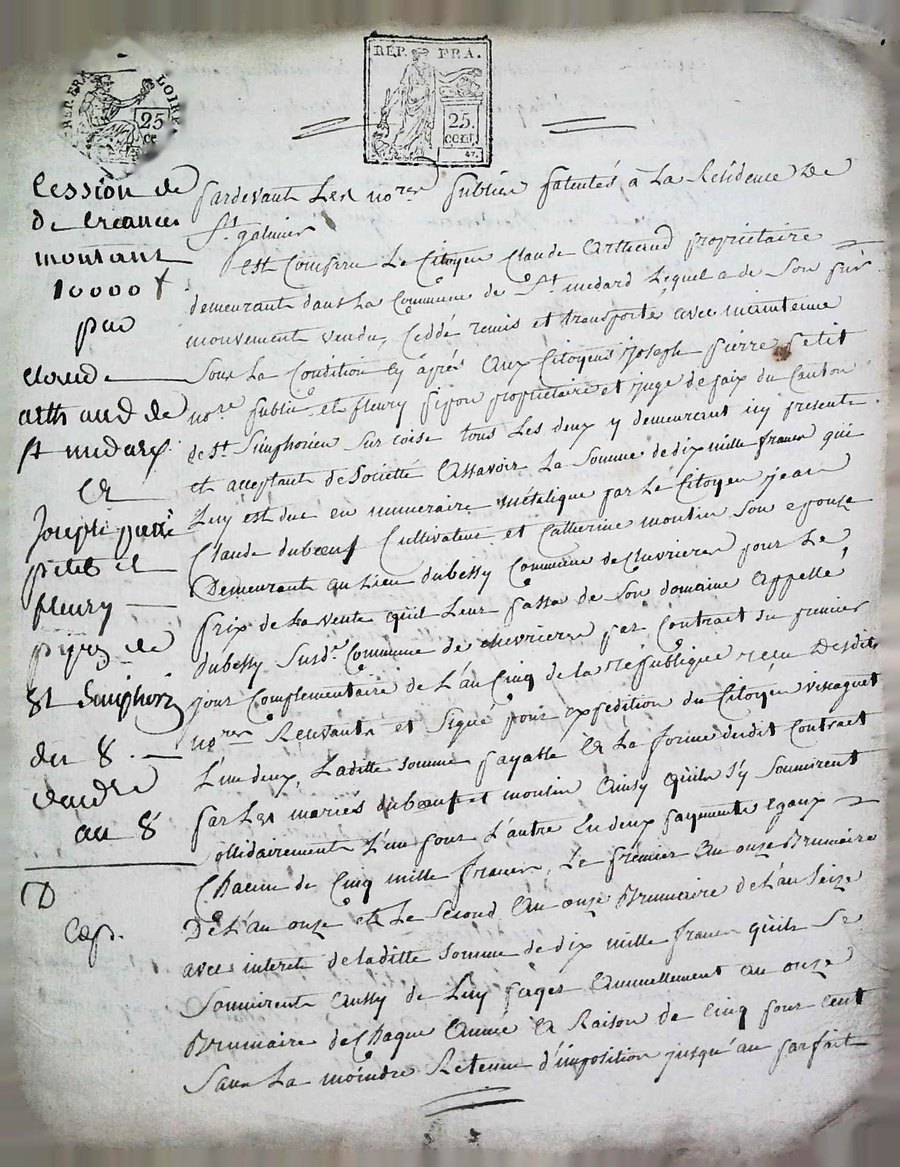 REP. FRA. LOIRE.
25
ce
REP. FRA.
25.
CENT.
47.
Cession de
de Creances
montant
10000 ₶
par
Claude
arthaud de
st medard
Et
Joseph pierre
petit et
fleury
pijon de
St Simphorien
du 8.
an 8
Cep.
Pardevant Les nores publics patentés à La Résidence De
St. galmier
Est Comparu Le Citoyen Claude Arthaud propriétaire
demeurant dans La Commune de St. medard Lequel a de Son pur
mouvement vendu, Ceddé remis et transporté avec maintenue
Sous La Condition Cy après Aux Citoyens Joseph pierre petit
nore. public et fleury pijon propriétaire et juge de paix du Canton
de St. Simphorien Sur Coise tous Les deux y demeurant icy presents
et acceptant de Societté Assavoir La Somme de dix mille francs qui
Luy est due en numeraire métalique par Le Citoyen Jean
Claude duboeuf Cultivateur et Catherine moulin Son epouse
Demeurant au Lieu dubessy Commune de Chevrieres pour Le
prix de La vente qu'il Leur passa de Son domaine Appellé
dubessy Susde. Commune de chevrieres par Contract du premier
jour Complementaire de L'an Cinq de la République reçu Desdits
nores et Signé pour expedition du Citoyen
L'un deux, Laditte Somme payable En La forme dudit Contract
par Les mariés duboeuf et moulin Ainsy qu'ils S'y Soumirent
Sollidairement L'un pour L'autre En deux payments Egaux
Chacun de Cinq mille francs, Le premier Au onze Brumaire
De L'an onze et Le Second Au onze Brumaire de L'an Seize
avec interet de laditte Somme de dix mille francs qu'ils Se
Soumirent Aussy de Luy payer Annuellement au onze
Brumaire de Chaque Année En Raison de Cinq pour Cent
Sans La moindre Retenue d'imposition jusqu'au parfait